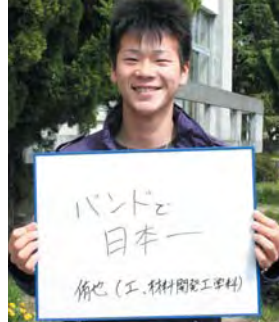 バンドで
日本一
侑也(工、材料開発工学科)